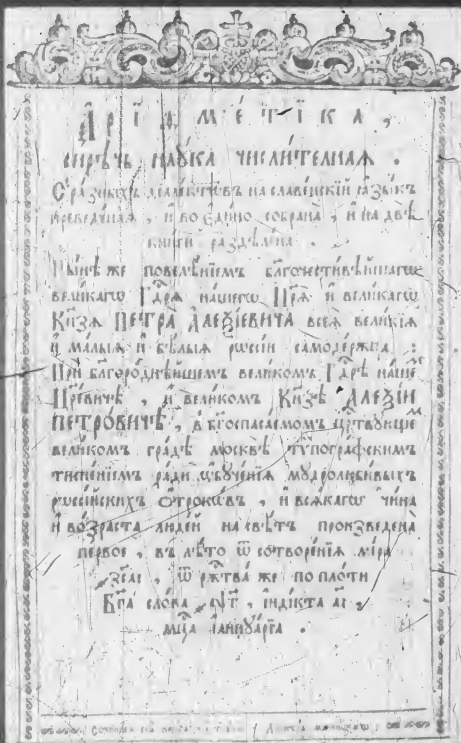 А҆рїѳме́тїка,
сирѣчь наука числителная.
С̾ разныхъ дїалектѡвъ на славенскїй ꙗзыкъ
преведеная, и҆ во є҆дино собрана, и҆ на двѣ
книги раздѣлена.
Нынѣ же повелѣнїемъ бл҃гочестивѣйшагѡ
великагѡ Гдⷭ҇рѧ нашегѡ Цр҃ѧ и҆ великагѡ
Кн҃зѧ ПЕТРА̀ А҆ЛЕѮІЕВИЧА всеѧ̀ великїѧ
и҆ малыѧ и҆ бѣлыѧ рѡссїи самодержца:
При бл҃городнѣйшемъ великомъ Гдⷭ҇рѣ наше
Цр҃евичѣ, и҆ великомъ Кн҃зѣ А҆ЛЕѮІИ
ПЕТРО́ВИЧѢ, в̾ бг҃оспасаемомъ црⷭ҇твующеⷨ
великомъ градѣ москвѣ тѷпографскимъ
тисненїемъ ради ѡ҆бученїѧ мудролюбивыхъ
рѡссїйскихъ ѻ҆трокѡвъ, и҆ всѧкагѡ чина
и҆ возраста людей на свѣтъ произведена
первое, въ лѣто ѿ сотворенїѧ мїра
҂зсаі, ѿ ржⷭ҇тва же по плоти
Бг҃а слова ҂аѱг, і҆ндїкта аі,
мцⷭ҇а і҆аннуарїа.
Сочинисѧ сїѧ книга